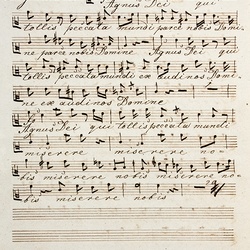 Agnus Dei qui
tollis peccata mundi parce nobis Domi-
ne parce nobis Domine Agnus Dei qui
tollis peccata mundi ex audi nos Domi-
ne ex audi nos Domine
Agnus Dei qui tollis peccata mundi
miserere miserere no-
bis miserere nobis miserere no-
bis miserere nobis